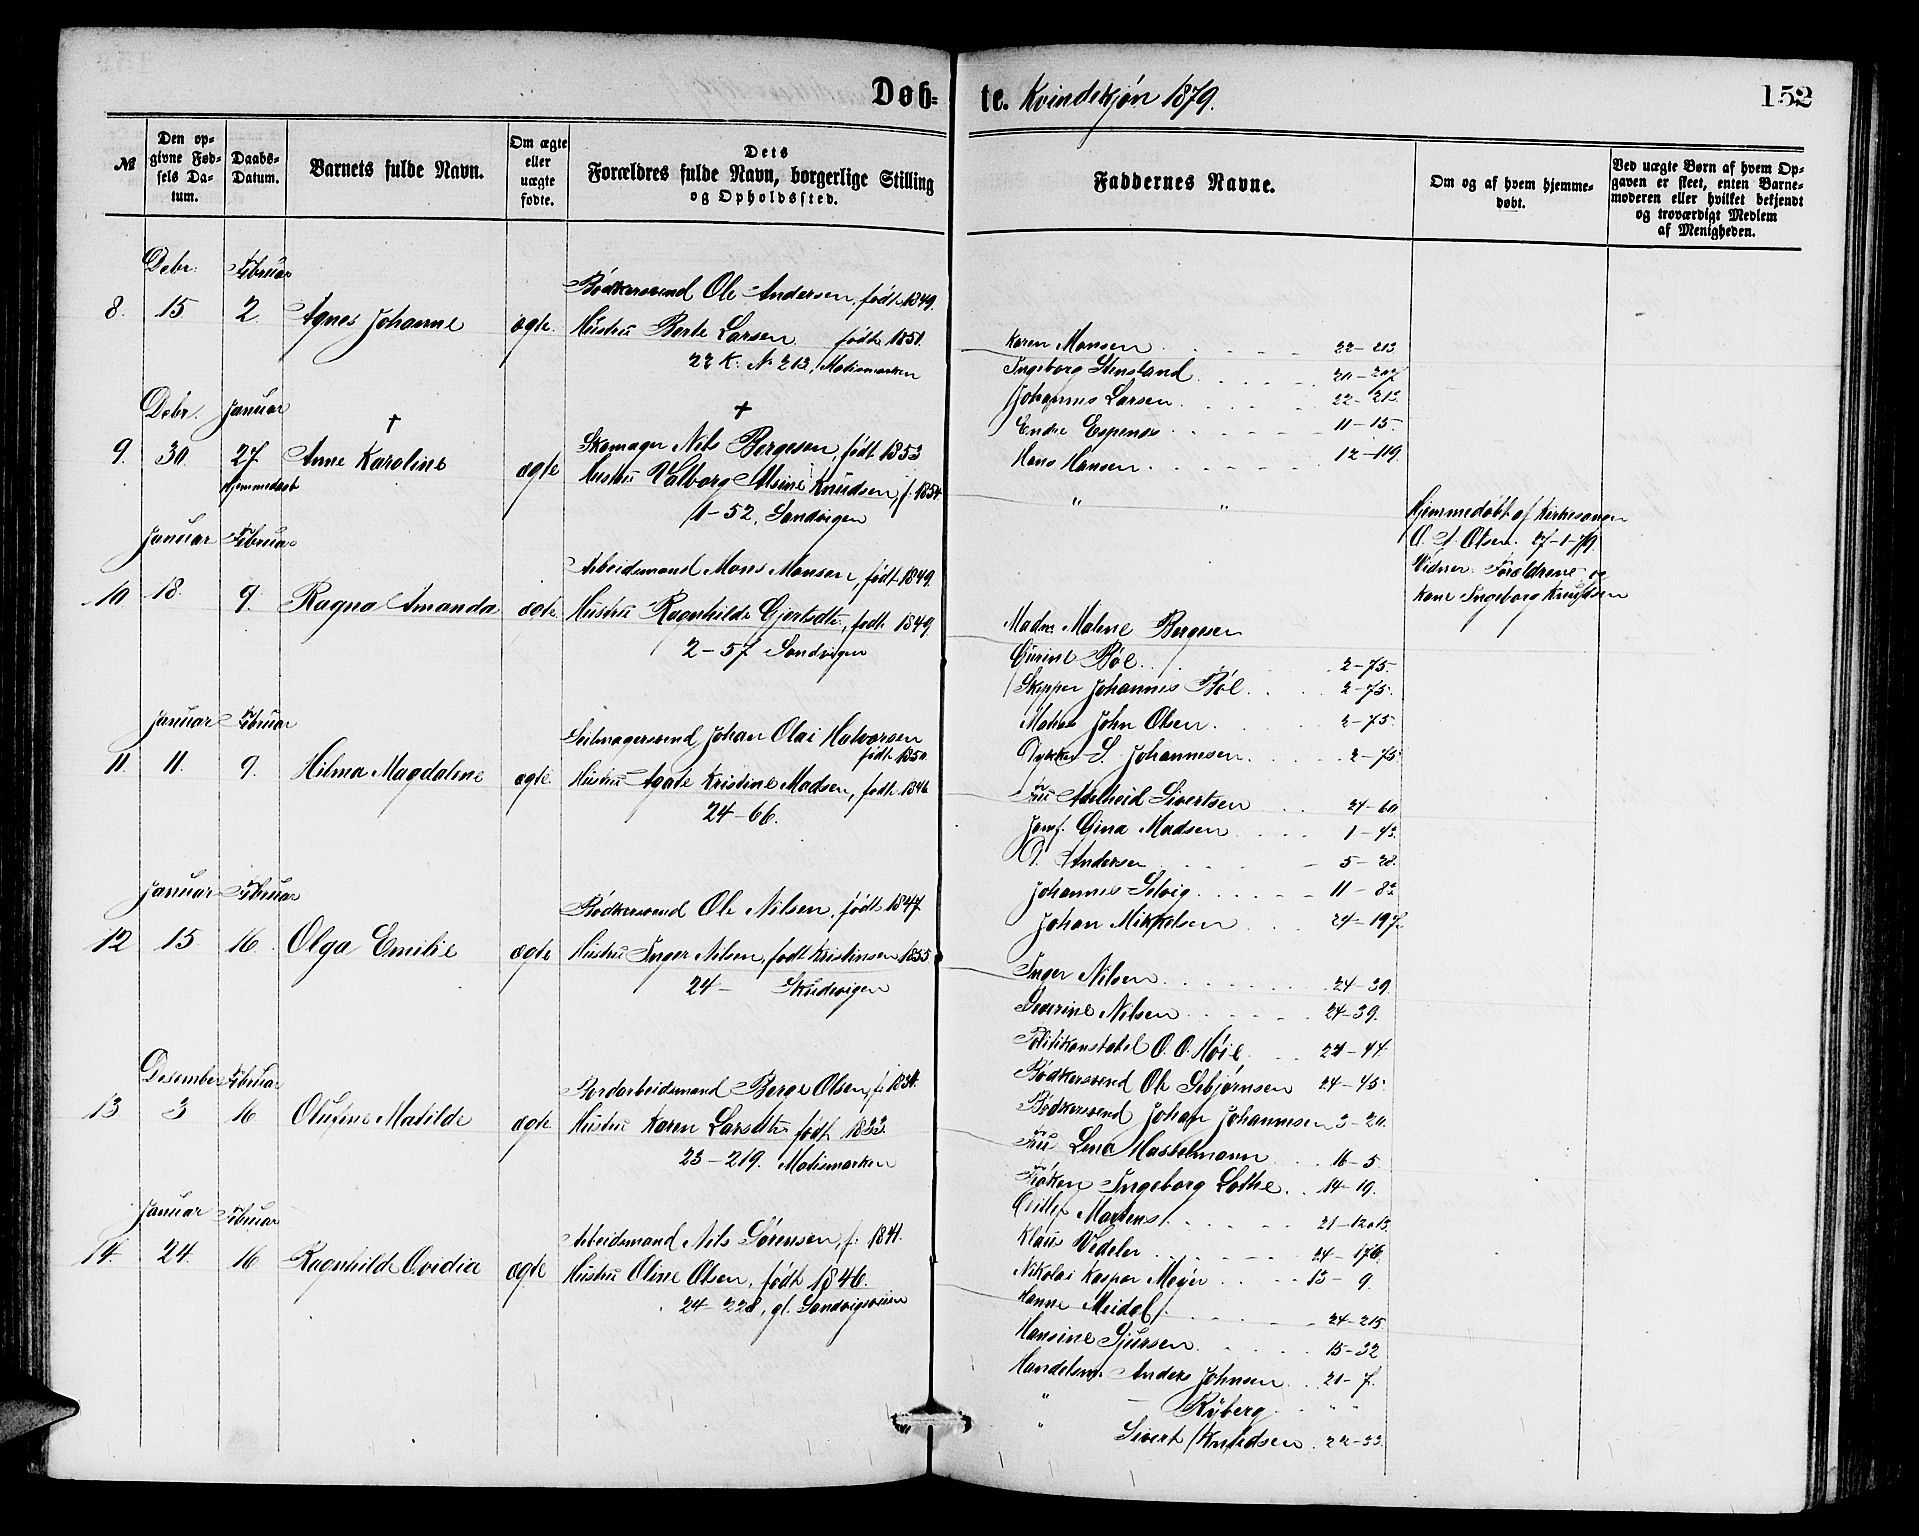 Døb-
te. Kvindekjøn 1879.
152
№
Den opgivne Fødsels Datum.
Daabs-Datum.
Barnets fulde Navn.
Om ægte eller uægte fødte.
Dets Forældres fulde Navn, borgerlige Stilling og Opholdssted.
Faddernes Navne.
Om og af hvem hjemmedøbt.
Ved uægte Børn af hvem Opgaven er skeet, enten Barnemoderen eller hvilket bekjendt og troværdigt Medlem af Menigheden.
Debr. Februar
8. 15 2. Agnes Johanne ægte.
Bødkersvend Ole Andersen, født 1849.
Hustru Berte Larsen født 1851.
22 K. No 213, Møllismarken
Karen Monsen 22-213
Ingeborg Stensland 20-207
Johannes Larsen 22-213
Endre Espenes 11-15.
Hans Hansen 12-119
Debr. Januar
9. 30. 27. Anne Karoline † ægte
Hjemmedøbt
†
Skomager Nils Bergesen, født 1853
Hustru Valborg Alsine Knudsen, f. 1854
1-52, Sandvigen
" "
Hjemmedøbt af Kirkesanger
O. A. Olsen. 27-1-79.
Vidner: Forældrene og
Kone Ingeborg Knudsen
Januar Februar
10 18. 9. Ragna Amanda ægte
Arbeidsmand Mons Monsen, født 1849.
Hustru Ragnhilde Gjertsdtr, født 1849.
2-57 Sandvigen
Madm Malene Bergesen
Gurine Bøe 2-75.
Skipper Johannes Bøe 2-75
John Olsen 2-75.
S. Johannesen 2-75
Januar Februar
11. 11. 9. Hilma Magdalene ægte
Seilmagersvend Johan Olai Halvorsen
født 1850
Hustru Agate Kristine Madsen, født 1846
24-66.
Fru Adelheid Sivertsen 24-60
Jomf. Gina Madsen 1-43
O. Andersen 5-28.
Johannes Selvig 11-82
Johan Mikkelsen 24-197
Januar Februar
12 15. 16. Olga Emilie ægte
Bødkersvend Ole Nilsen, født 1847.
Hustru Inger Nilsen, født Kristinsen 1855
24- Skudevigen
Inger Nilsen 24-39.
Severine Nilsen 24-39.
Politikonstabel O. O. Høie 24-44.
Bødkersvend Ole Sebjørnsen 24-45
Bødkersvend Johan Johannesen 3-20.
Desember Februar
13 3 16 Olufine Matilde ægte
Bordarbeidsmand Berge Olsen, f. 1834.
Hustru Karen Larsdtr født 1833.
23-219. Møllismarken
Fru Lena Hasselmann 16-5.
Frøken Ingeborg Lothe 14-19.
Ditlef Martens 21-12a13.
Klaus Wedeler 24-176.
Nikolai Kaspar Meyer 13-9.
Januar Februar
14. 24. 16 Ragnhilde Ovidia ægte
Arbeidsmand Nils Sørensen, f. 1841.
Hustru Oline Olsen, født 1846.
24-228, gl. Sandvigsveien
Hanne Meidel 24-215
Hansine Sjursen 15-32
Handelsm. Anders Johnsen 21-7.
" Ryberg " "
" Sivert Knudsen 22-33.